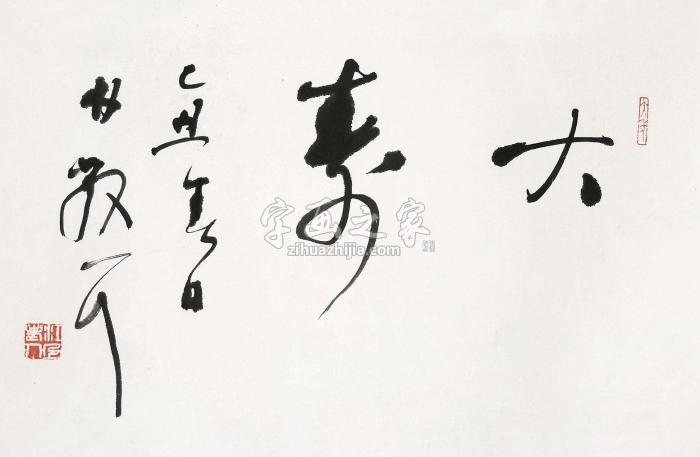 大
寿
乙丑春日
林散耳
字画之家
zihuazhijia.com